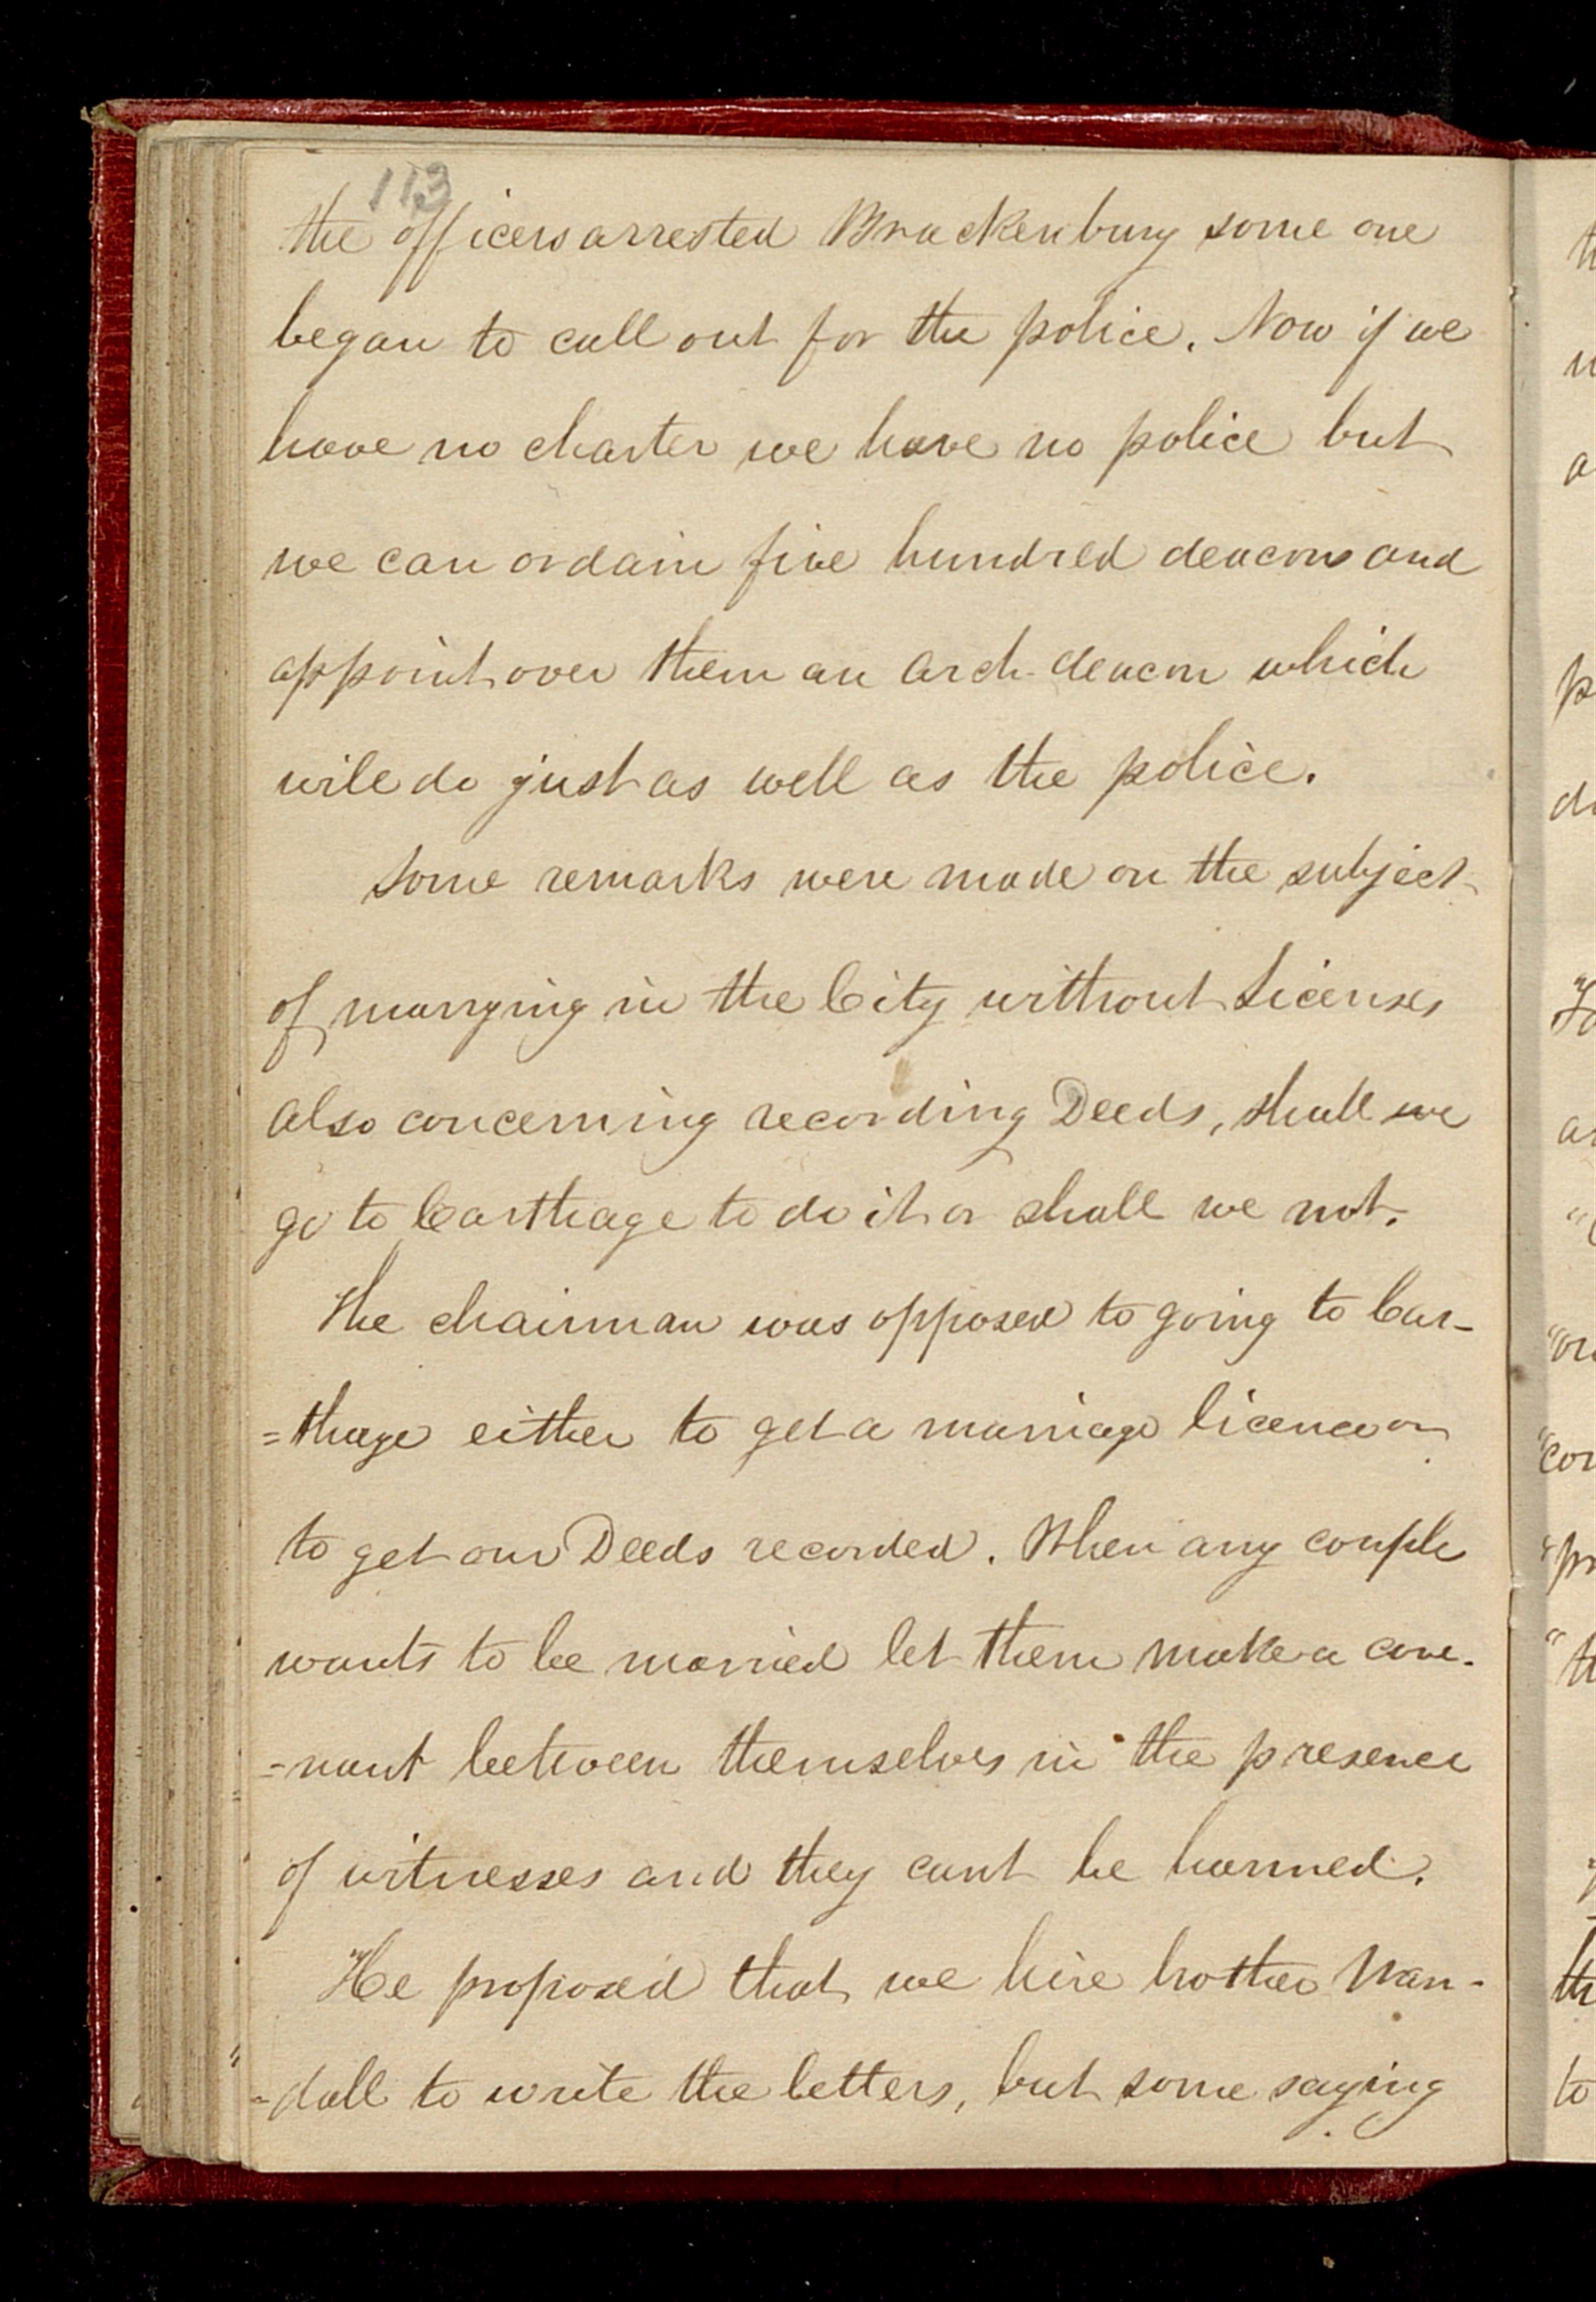 113
the officers arrested Brackenbury some one
began to call out for the police. Now if we
have no charter we have no police but
we can ordain five hundred deacons and
appoint over them an arch-deacon which
will do just as well as the police.
Some remarks were made on the subject
of marrying in the City without Licenses
also concerning recording Deeds, shall we
go to Carthage to do it or shall we not.
The chairman was opposed to going to Car-
=thage either to get a marriage licence or
to get our Deeds recorded. When any couple
wants to be married let them make a cove-
=nant between themselves in the presence
of witnesses and they cant be harmed.
He proposed that we hire brother Wan-
-dall to write the letters, but some saying